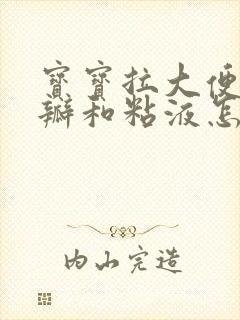 寶寶拉大便
瓣和粘液怎
内山完造